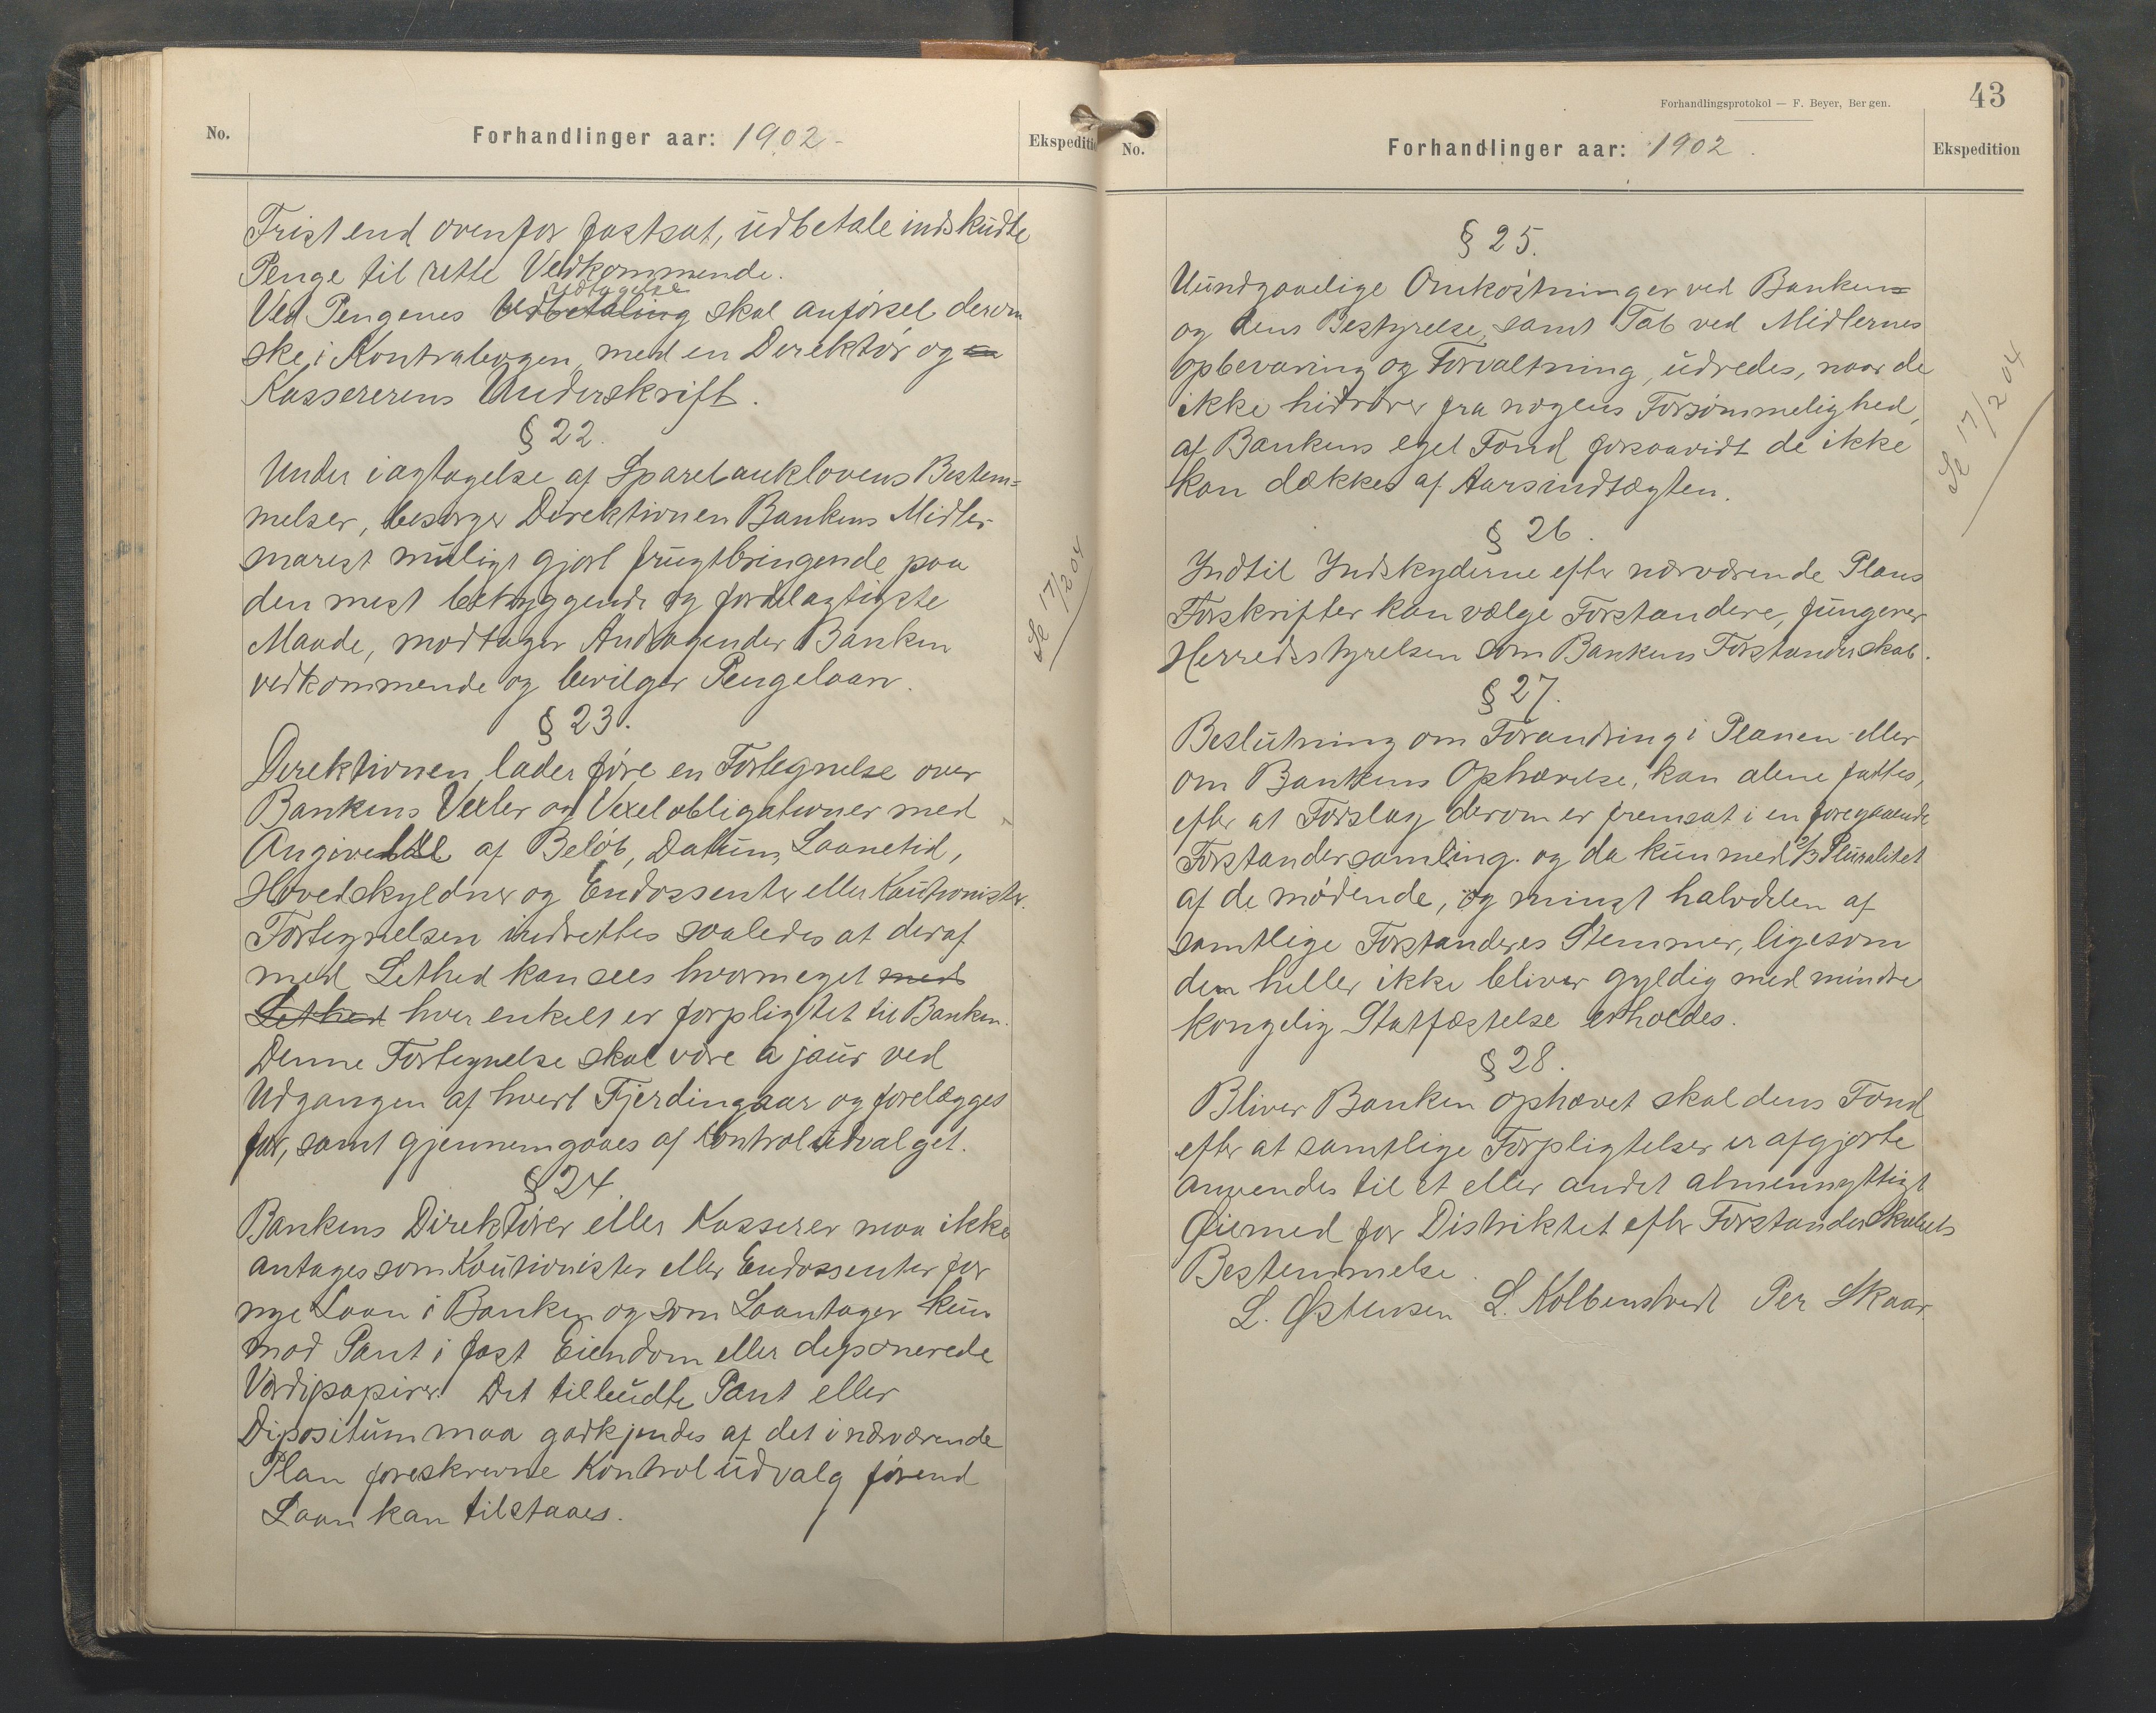 No.
Forhandlinger aar: 1902-
Ekspediti
Frist end ovenfor fastsat, udbetale indskudte
Penge til rette Vedkommende.
Udtagelse
Ved Pengenes Udbetaling skal anførsel derom
ske i Kontrabogen med en Direktør og en
Kassererens Underskrift.
§ 22.
Under iagtagelse af Sparebanklovens Bestem=
melser, besørger Direktionen Bankens Midler
snarest muligt gjort frugtbringende paa
den mest betryggende og fordelagtigste
Maade, modtager Andragender Banken
vedkommende og bevilger Pengelaan.
§ 23.
Direktionen lader føre en Fortegnelse over
Bankens Vexler og Vexelobligationer med
Angivelse af Beløb, Datum, Laanetid,
Hovedskyldner og Endossenter eller Kautionister.
Fortegnelsen indrettes saaledes at deraf
med Lethed kan sees hvormeget med
Lethed hver enkelt er forpligtet til Banken.
Denne Fortegnelse skal være a jour ved
Udgangen af hvert Fjerdingaar og forelægges
for, samt gjennemgaaes af Kontroludvalget.
§ 24.
Bankens Direktører eller Kasserer maa ikke
antages som Kautionister eller Endossenter for
nye Laan i Banken og som Laantager kun
mod Pant i fast Eiendom eller deponerede
Værdipapirer. Det tilbudte Pant eller
Dipositum maa godkjendes af det i nærværende
Plan foreskrevne Kontroludvalg førend
Laan kan tilstaaes.
Se 17/2 04
Forhandlingsprotokol — F. Beyer, Bergen.
43
No.
Forhandlinger aar: 1902.
Ekspedition
§ 25.
Uundgaaelige Omkostninger ved Banken
og dens Bestyrelse, samt Tab ved Midlernes
Opbevaring og Forvaltning, udredes, naar de
ikke hidrører fra nogens Forsømmelighed,
af Bankens eget Fond forsaavidt de ikke
kan dækkes af Aarsindtægten.
§ 26.
Indtil Indskyderne efter nærværende Plans
Forskrifter kan vælge Forstandere, fungerer
Herredsstyrelsen som Bankens Forstanderskab.
§ 27.
Beslutning om Forandring i Planen eller
om Bankens Ophævelse, kan alene fattes,
efter at Forslag derom er fremsat i en foregaaende
Forstandersamling. og da kun med 2/3 Pluralitet
af de mødende, og mingst halvdelen af
samtlige Forstanderes Stemmer, ligesom
den heller ikke bliver gyldig med mindre
kongelig Statfæstelse erholdes.
§ 28.
Bliver Banken ophævet skal dens Fond
efter at samtlige Forpligtelser er afgjorte
anvendes til et eller andet almennyttigt
Øiemed for Distriktet efter Forstanderskabets
Bestemmelse.
L. Østensen L. Kolbenstvedt Per Skaar.
Se 17/2 04